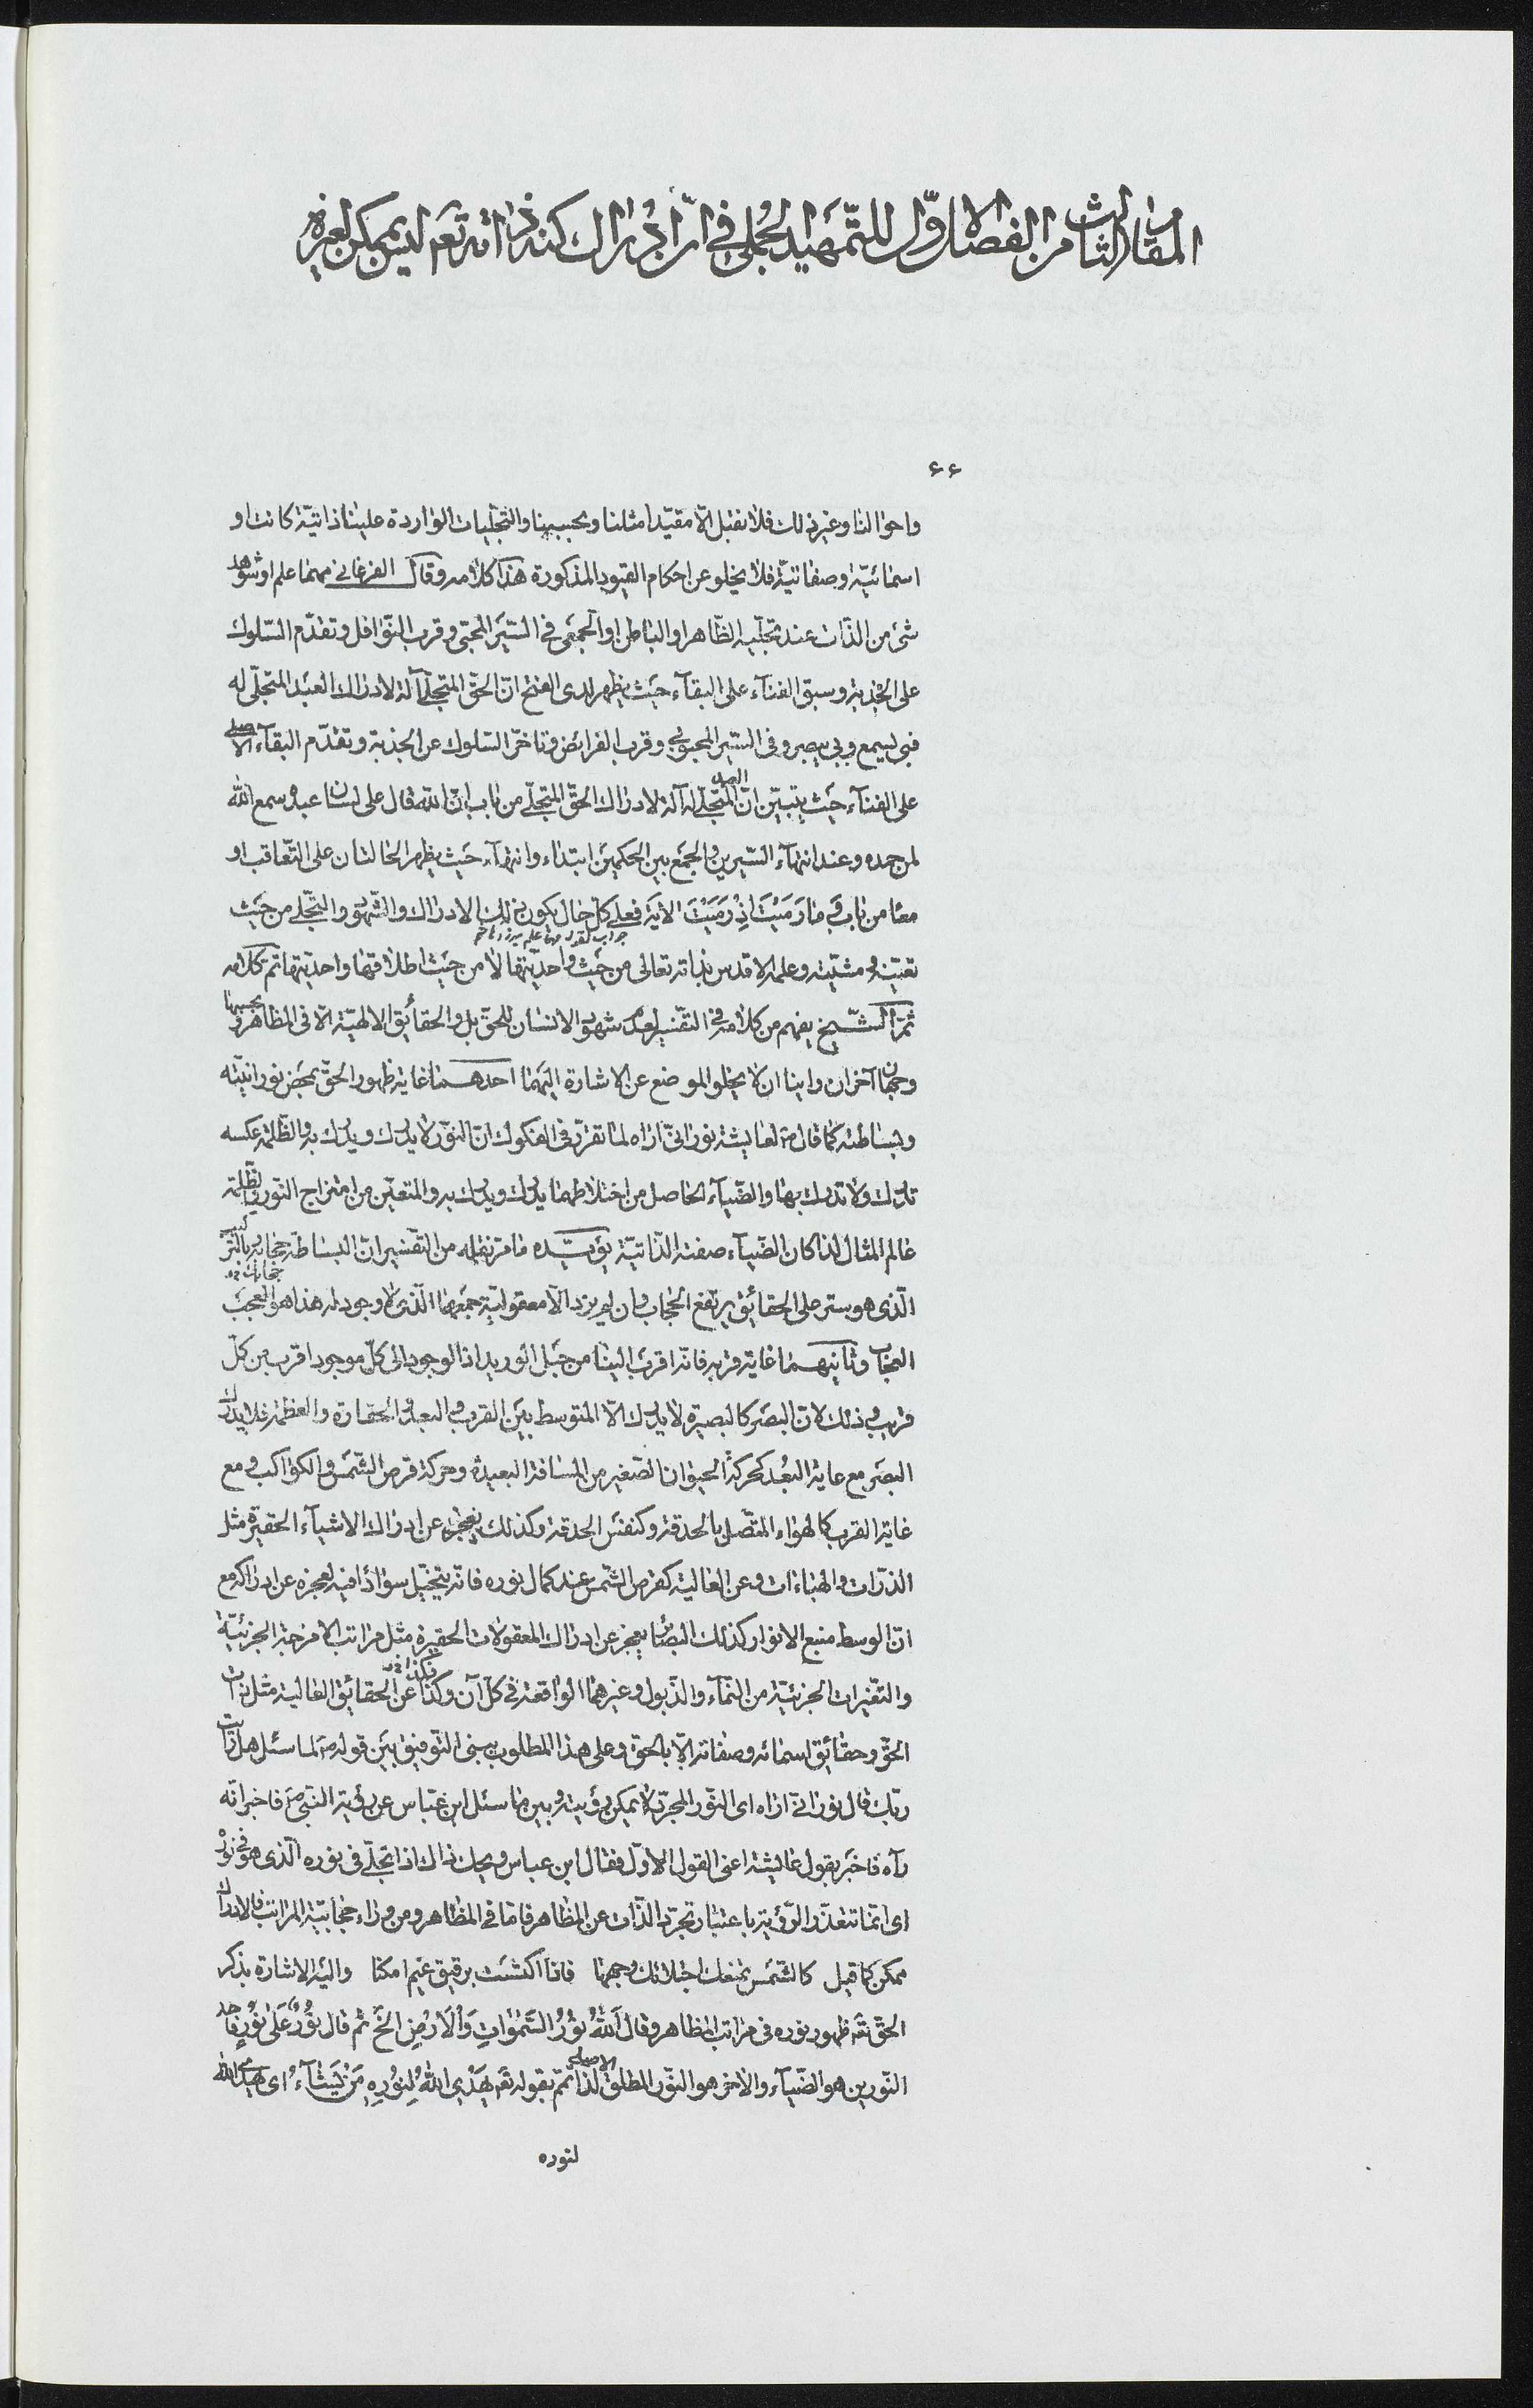 المقام الثالث من الفصل الاوّل للتّمهيد الجُملى فى انّ ادراك كنه ذاته تعَ ليس بممكن لغيره
۶۶
واحوالنا وغير ذلك فلا نقبل الّا مقيّدا مثلنا وبحسبنا والتجلّيات الواردة علينا ذاتيّة كانت او
اسمائيّة وصفاتيّة فلا يخلو عن احكام القيود المذكورة هذا كلامه وقال الفرغانى مهما علم او شوهد
شىء من الذّات عند تجلّيه الظّاهر او الباطن او الجمعى فى السّير المحبّى وقرب النّوافل وتقدّم السّلوك
على الجذبة وسبق الفنآء على البقآء حيث يظهر لدى الفتح انّ الحقّ المتجلّى آلة لادراك العبد المتجلّى له
فبى يسمع وبى يبصر وفى السّير المحبوبى وقرب الفرائض وتاخّر السّلوك عن الجذبة وتقدّم البقآء الاصلى
على الفنآء حيث يتبيّن انّ العبد المتجلّى له آلة لادراك الحقّ المتجلّى من باب انّ اللّه قال على لسان عبده سمع اللّه
لمن حمده وعند انتهآء السّيرين والجمع بين الحكمين ابتداء وانتهآء حيث يظهر الحالتان على التّعاقب او
معًا من باب وَ ما رَمَيْتَ اِذْ رَمَيْتَ الآية فعلى كلّ حال يكون ذلك الادراك والشّهود والتجلّى من حيث
تعيّنه ومشيّته وعلمه الاقدس بذاته تعالى من حيث واحديّتها لا من حيث اطلاقها واحديّتها تمّ كلامه
ثمّ الشّيخ يفهم من كلامه فى التفسير لعدم شهود الانسان للحقّ بل والحقائق الالهيّة الّا فى المظاهر وبحسبها
وجهان آخران رأينا ان لا يخلو الموضع عن الاشارة اليهما احدهما غاية ظهور الحقّ بمحض نورانيّته
وبساطته كما قال ص لعايشة نورانىّ اراه لما تقرّر فى الفكوك انّ النّور لا يدرك ويدرك به والظّلمة عكسه
تدرك ولا تدرك بها والضّيآء الحاصل من اختلاطهما يدرك ويدرك به والمتعيّن من امتزاج النّور والظّلمة
عالم المثال لذا كان الضّيآء صفته الذّاتيّة يؤيّده ما مرّ نقله من التّفسير انّ البساطة حجابه وبالتركيب
الّذى هو ستر على الحقائق يرتفع الحجاب وان لم يزد الّا معقولية جمعها الّذى لا وجود له هذا هو العجب
العجاب وثانيهما غاية قربه فانّه اقرب الينا من حبل الوريد اذ الوجود الى كلّ موجود اقرب من كلّ
قريب وذلك لانّ البصر كالبصيرة لا يدرك الّا المتوسط بين القرب والبعد والحقارة والعظمة فلا يدرك
البصر مع غاية البُعد كحركة الحيوان الصّغير من المسافة البعيدة وحركة قرص الشّمس والكواكب ومع
غاية القرب كالهواء المتّصل بالحدقة وكنفس الحدقة وكذلك يعجز عن ادراك الاشيآء الحقيرة مثل
الذرّات والهباءات وعن العالية كقرص الشّمس عند كمال نوره فانّه يتخيّل سوادًا فيه لعجزه عن ادراكه مع
انّ الوسط منبع الانوار كذلك البصائر يعجز عن ادراك المعقولات الحقيرة مثل مراتب الامزجة الجزئيّة
والتّغيرات الجزئيّة من النّماء والذّبول وغيرهما الواقعة فى كلّ آن وكذا عن الحقائق العالية مثل ذات
الحقّ وحقائق اسمائه وصفاته الّا بالحقّ وعلى هذا المطلوب يبنى التّوفيق بين قوله ص لما سئل هل رأيت
ربّك قال نورانىّ اراه اى النّور المجرّد لا يمكن رؤيته وبين ما سئل ابن عبّاس عن رؤية النّبى ص فاخبر انّه
رآه فاخبر بقول عايشة اعنى القول الاوّل فقال ابن عباس ويحك ذاك اذا تجلّى فى نوره الّذى هو نوره
اى انّما تتعذّر الرّؤية باعتبار تجرّد الذّات عن المظاهر فامّا فى المظاهر ومن وراء حجابيّة المراتب فالادراك
ممكن كما قيل كالشّمس يمنعك اجتلاءك وجهها فاذا اكتست برقيق غيم امكنا واليه الاشارة بذكر
الحقّ تعَ ظهور نوره فى مراتب المظاهر وقال اَللّهُ نُورُ السَّمٰوٰاتِ وَالْاَرْضِ الخ ثم قال نُورٌ عَلىٰ نُورٍ فاحد
النّورين هو الضّيآء والآخر هو النّور المطلق الاصلى لذا تمّم بقوله تعَ يَهْدِى اللّهُ لِنُورِهِ مَنْ يَشآءُ اى يهدى اللّه
لنوره